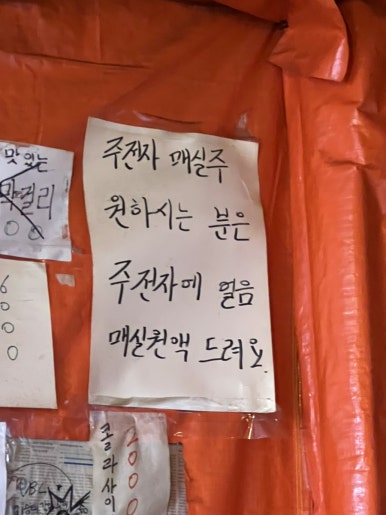 주전자 매실주
원하시는 분은
주전자에 얼음
매실원액 드려요.
맛있는
막걸리
00
6
0
0
0
콜라사이
2000